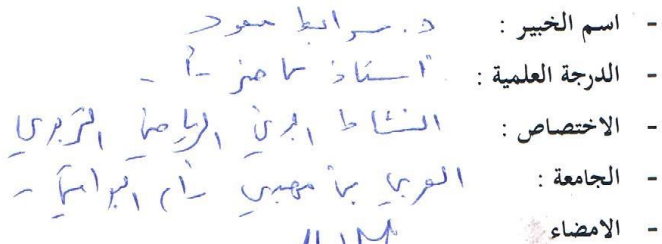 - اسم الخبير : د. سرايط مسعود
- الدرجة العلمية : أستاذ محاضر - أ -
- الاختصاص : النشاط البدني الرياضي التربوي
- الجامعة : العربي بن مهيدي - أم البواقي -
- الامضاء